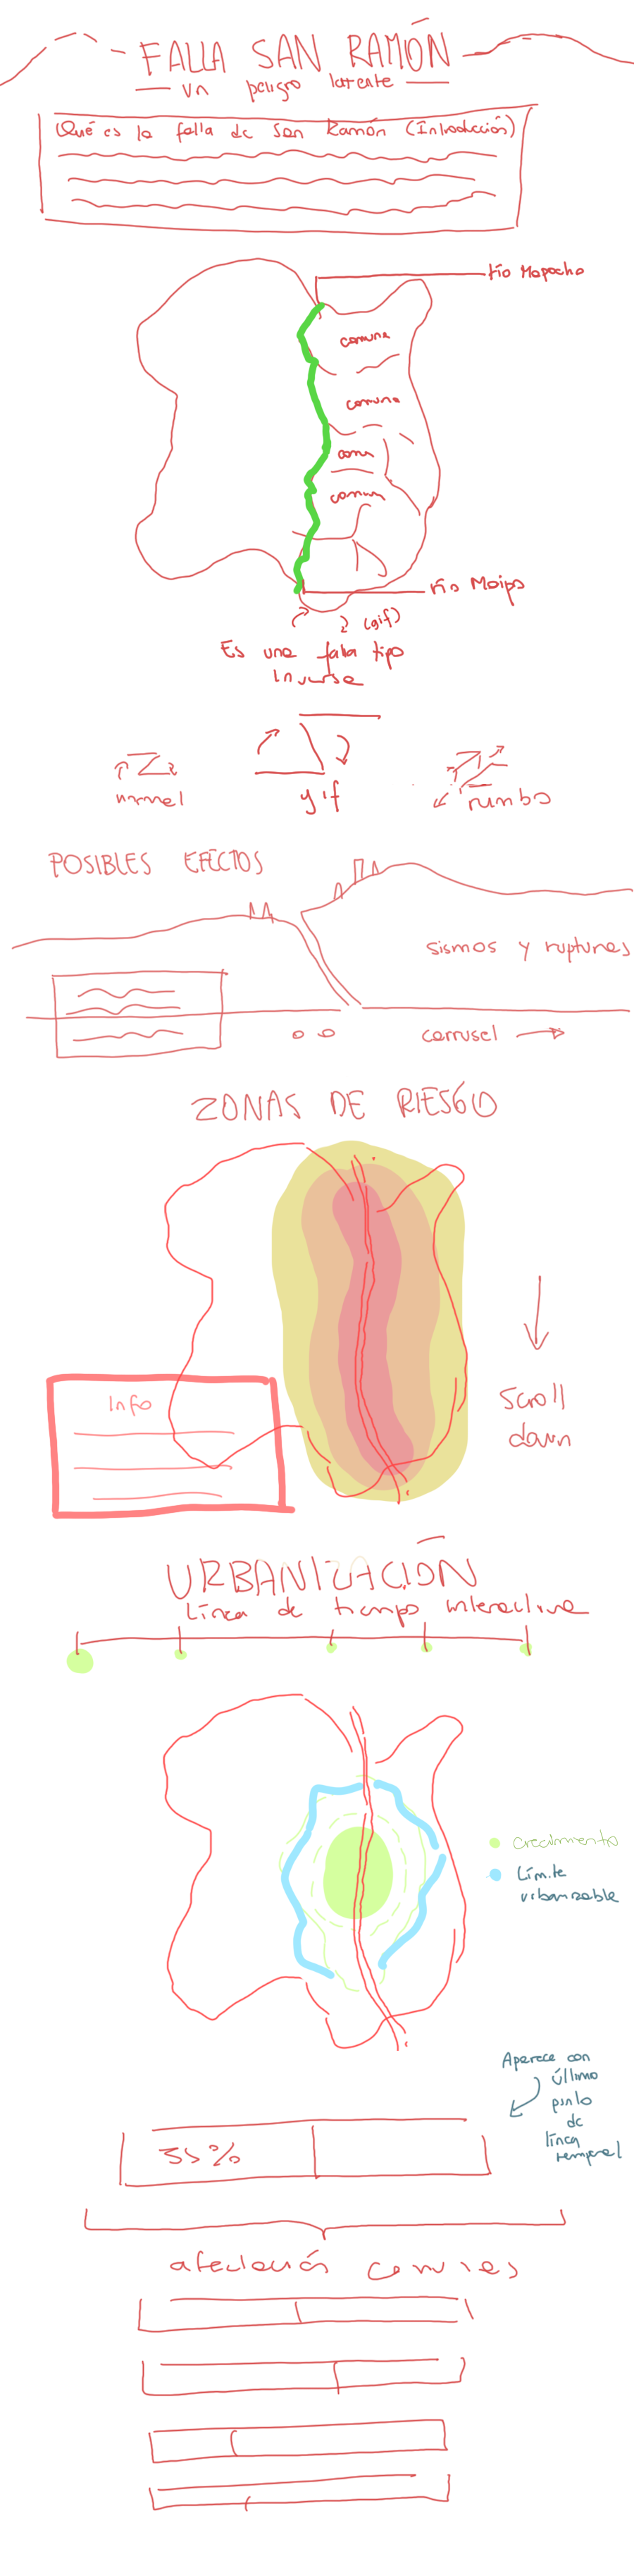 FALLA SAN RAMÓN
un peligro latente
Qué es la falla de San Ramón (Introducción)
río Mapocho
comuna
comuna
comu
comun
río Maipo
(gif)
Es una falla tipo
inversa
normal
gif
rumbo
POSIBLES EFECTOS
sismos y rupturas
carrusel
ZONAS DE RIESGO
Info
Scroll
down
URBANIZACIÓN
Línea de tiempo interactiva
crecimiento
Límite
urbanizable
Aparece con
último
punto
de
línea
temporal
35%
afectación comunas